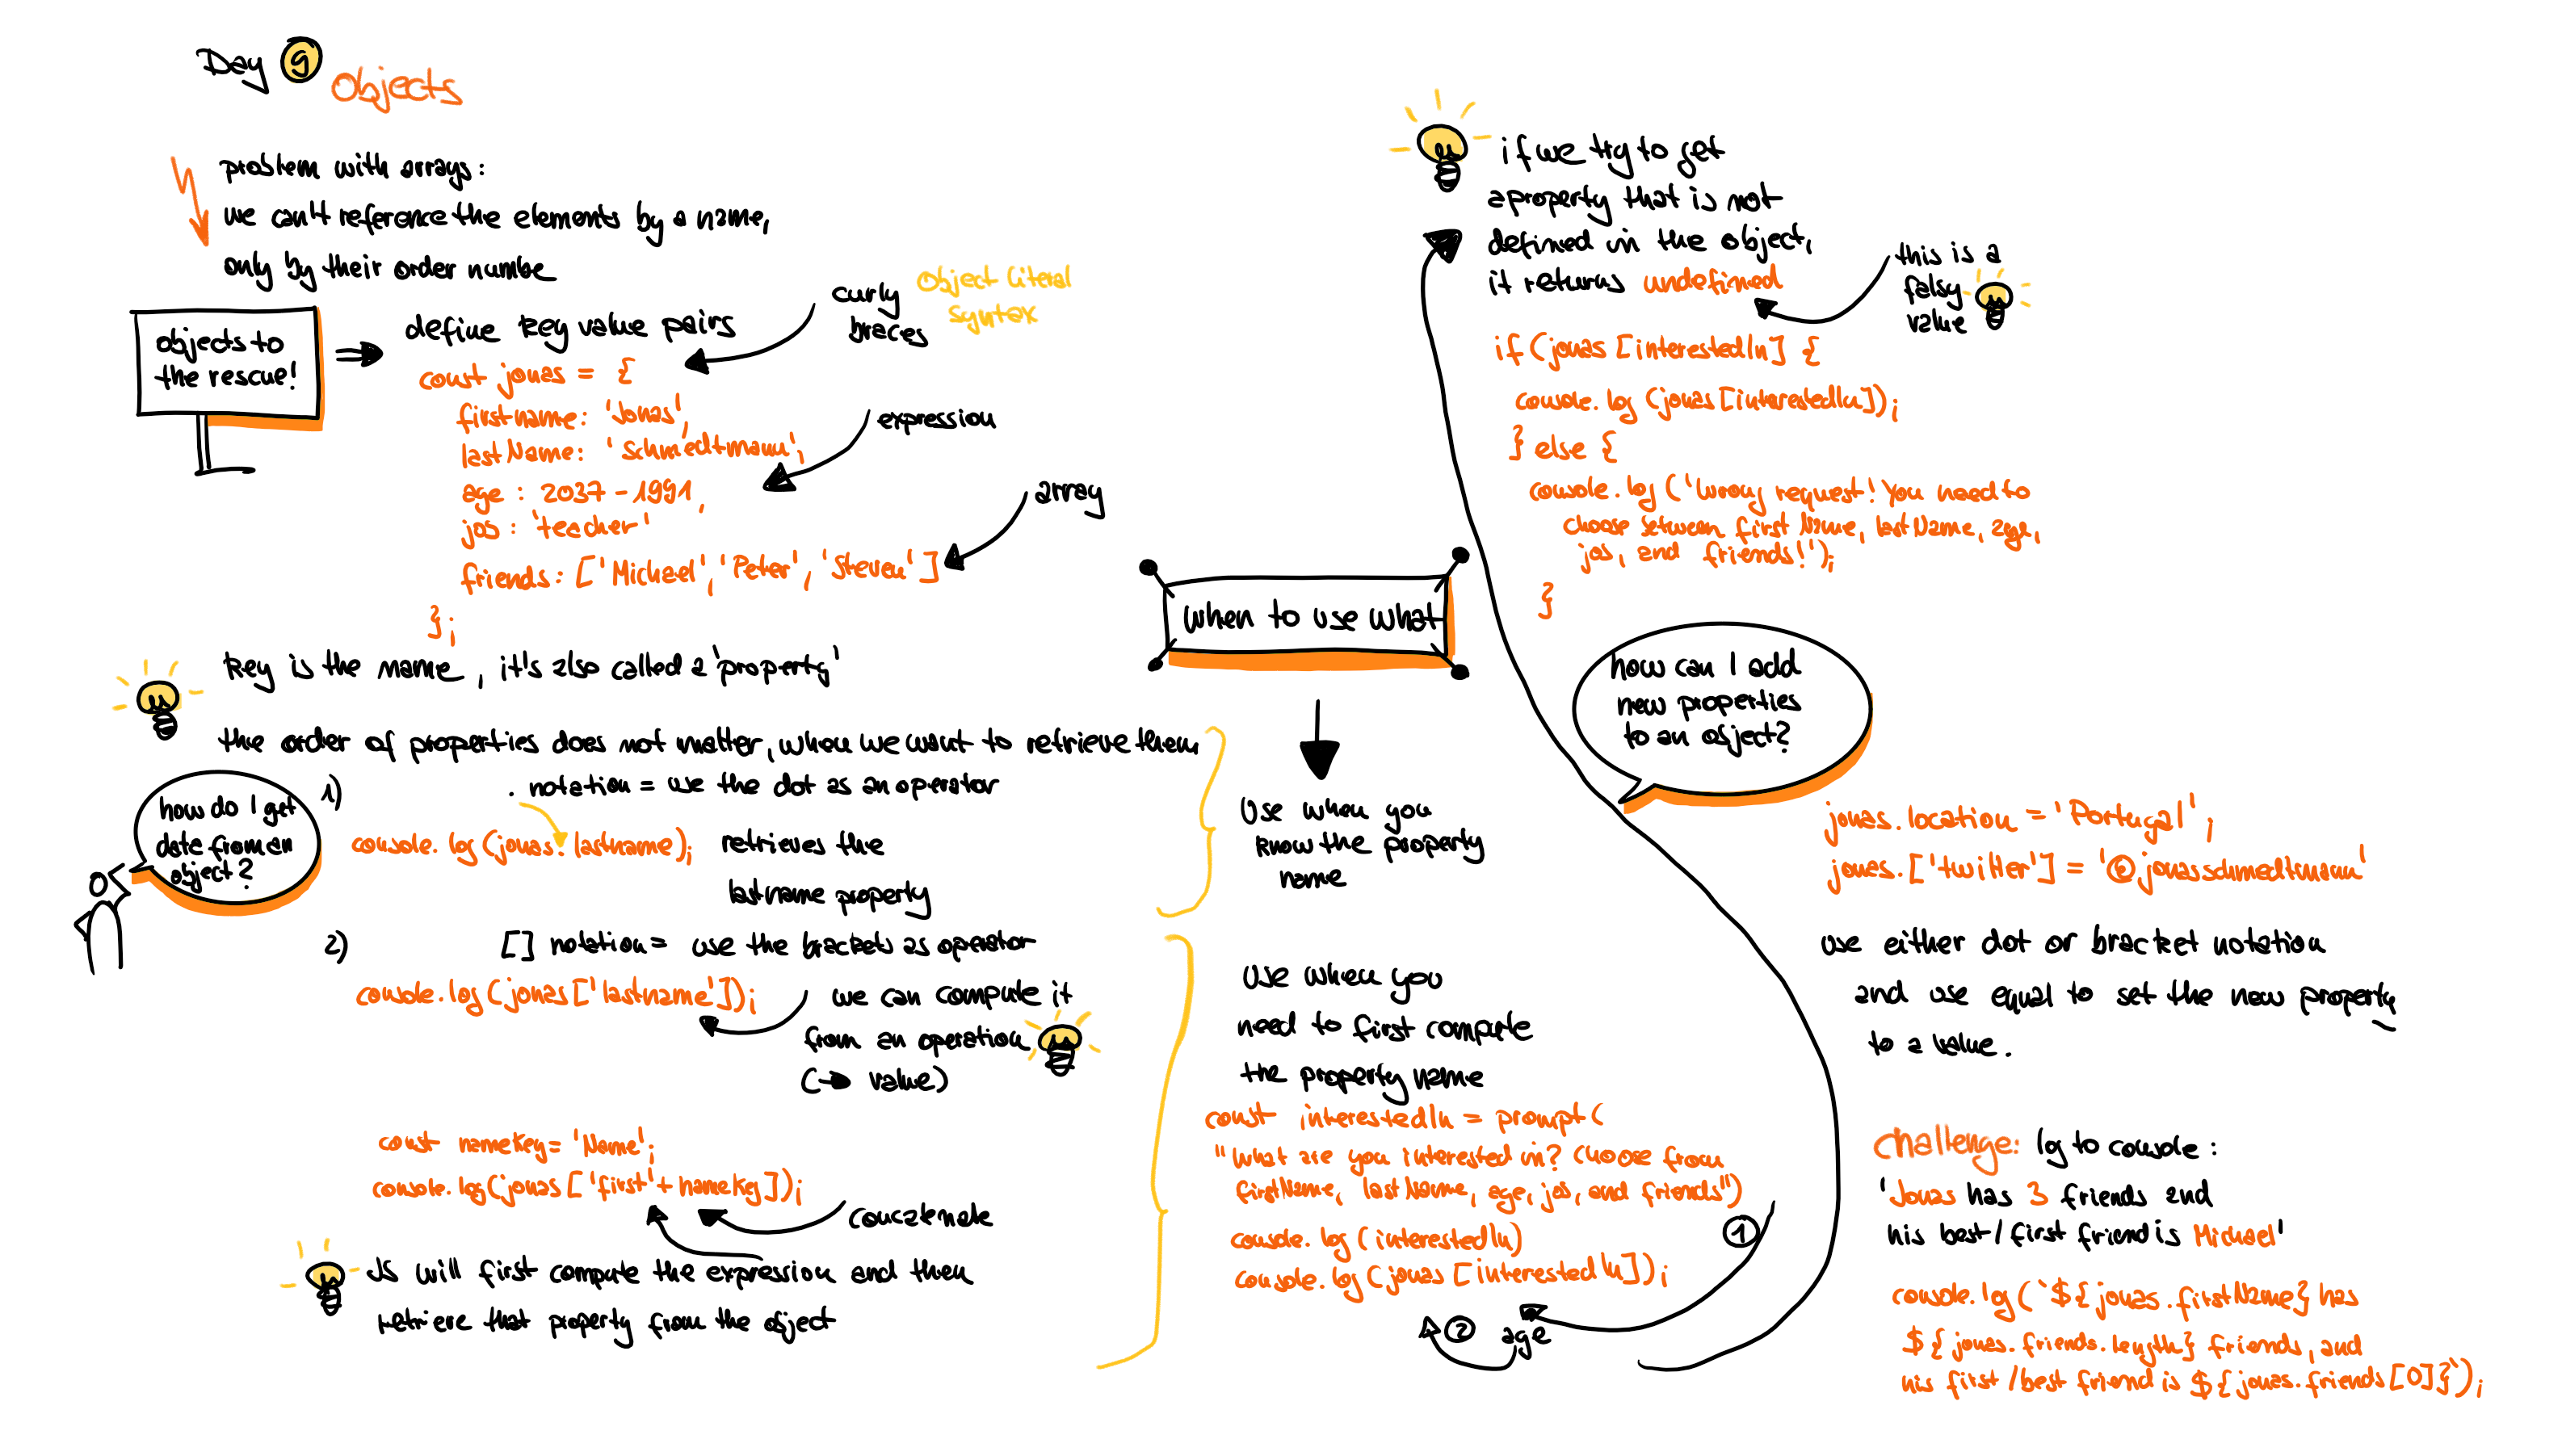 Day 9
Objects
problem with arrays:
we can't reference the elements by a name,
only by their order numbe
objects to
the rescue!
define key value pairs
curly
braces
Object Literal
Syntax
const jonas = {
firstname: 'Jonas',
lastName: 'Schmedtmann',
age: 2037-1991,
job: 'teacher'
friends: ['Michael', 'Peter', 'Steven']
};
expression
array
key is the name, it's also called a 'property'
the order of properties does not matter, when we want to retrieve them
how do I get
data from an
object?
1)
. notation = use the dot as an operator
console.log(jonas.lastname);
retrieves the
lastname property
2)
[] notation = use the brackets as operator
console.log(jonas['lastname']);
we can compute it
from an operation
(→ value)
const nameKey = 'Name';
console.log(jonas['first' + nameKey]);
concatenate
JS will first compute the expression and then
retrieve that property from the object
when to use what
Use when you
know the property
name
Use when you
need to first compute
the property name
const interestedIn = prompt(
"What are you interested in? Choose from
firstName, lastName, age, job, and friends")
console.log(interestedIn)
console.log(jonas[interestedIn]);
1
2
age
if we try to get
a property that is not
defined in the object,
it returns undefined
this is a
falsy
value
if (jonas[interestedIn] {
console.log(jonas[interestedIn]);
} else {
console.log('Wrong request! You need to
choose between firstName, lastName, age,
job, and friends!');
}
how can I add
new properties
to an object?
jonas.location = 'Portugal';
jonas.['twitter'] = '@jonasschmedtmann'
use either dot or bracket notation
and use equal to set the new property
to a value.
Challenge: log to console:
'Jonas has 3 friends and
his best/first friend is Michael'
console.log(`${jonas.firstName} has
${jonas.friends.length} friends, and
his first/best friend is ${jonas.friends[0]}`);